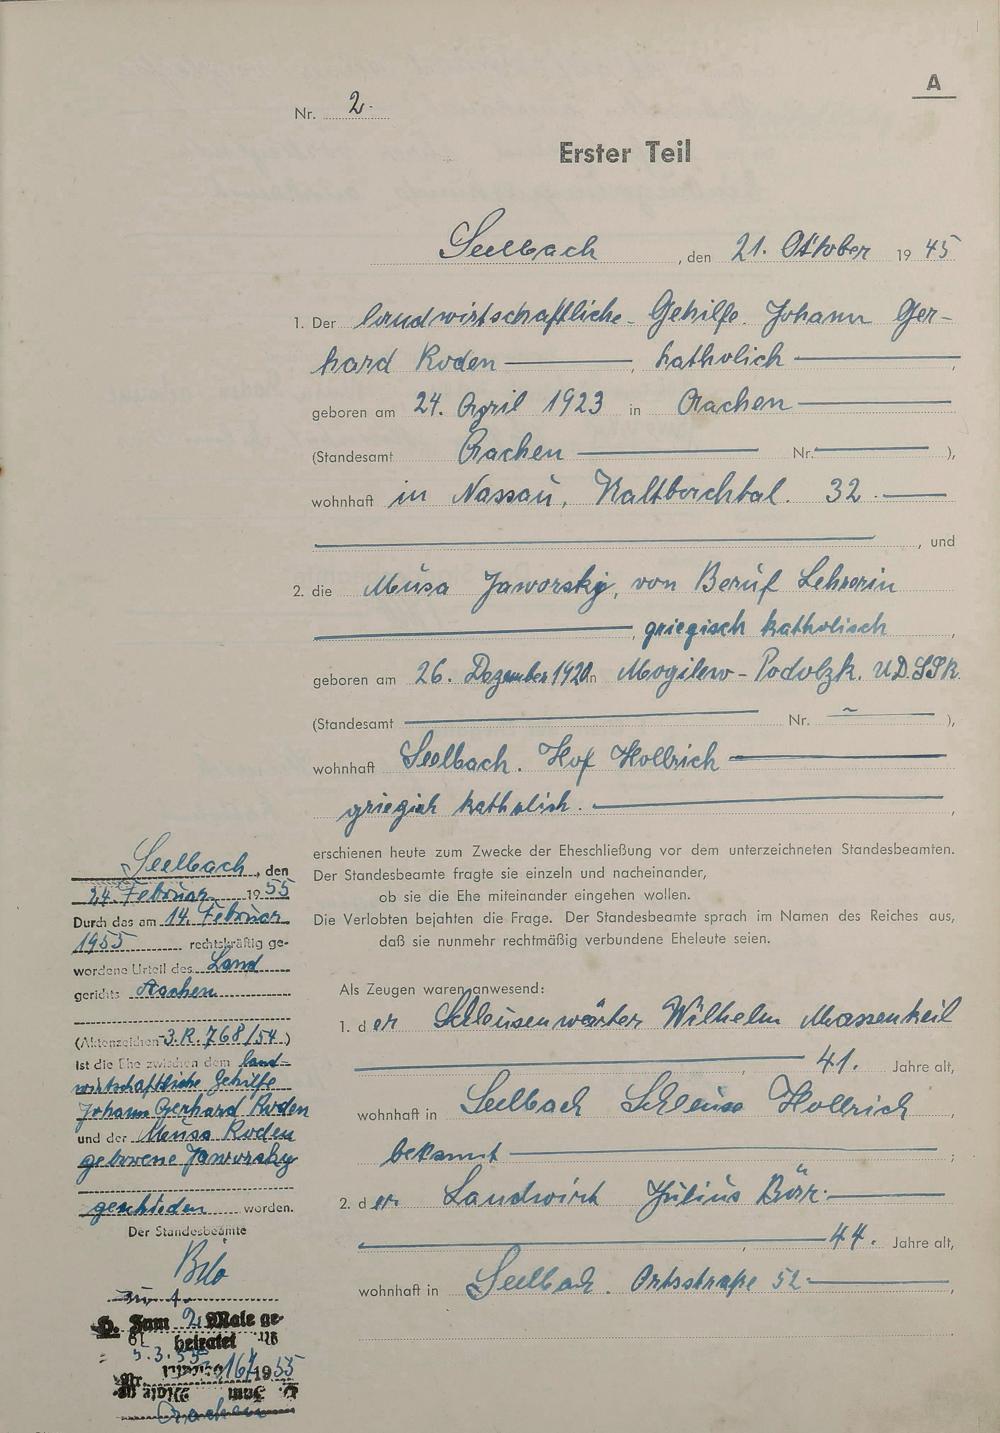 A
Nr. 2.
Erster Teil
Seelbach, den 21. Oktober 1945
1. Der landwirtschaftliche Gehilfe Johann Ger-
hard Roden, katholich,
geboren am 24. April 1923 in Aachen
(Standesamt Aachen Nr. ),
wohnhaft in Nassau, Kaltbachtal. 32.
, und
2. die Musa Jaworsky, von Beruf Lehrerin
, griegisch katholisch,
geboren am 26. Dezember 1920 in Mogilew-Podolzk. U.D.SSR.
(Standesamt Nr. ),
wohnhaft Seelbach. Hof Hollrich
griegich katholich.,
erschienen heute zum Zwecke der Eheschließung vor dem unterzeichneten Standesbeamten.
Der Standesbeamte fragte sie einzeln und nacheinander,
ob sie die Ehe miteinander eingehen wollen.
Die Verlobten bejahten die Frage. Der Standesbeamte sprach im Namen des Reiches aus,
daß sie nunmehr rechtmäßig verbundene Eheleute seien.
Als Zeugen waren anwesend:
1. der Schleusenwärter Wilhelm Massenkeil
, 41. Jahre alt,
wohnhaft in Seelbach Schleuse Hollrich,
bekannt ;
2. der Landwirt Julius Börr.
, 44. Jahre alt,
wohnhaft in Seelbach. Ortsstraße 52,
Seelbach, den
24. Februar 1955
Durch das am 14. Februar
1955 rechtskräftig ge-
wordene Urteil des Land
gerichts Aachen
(Aktenzeichen 3.R.768/54)
ist die Ehe zwischen dem land-
wirtschaftliche Gehilfe
Johann Gerhard Roden
und der Musa Roden
geborene Jaworsky
geschieden worden.
Der Standesbeamte
Zum 2. Male ge-
heiratet
5.3.55
Nr. 167/1955
Aachen